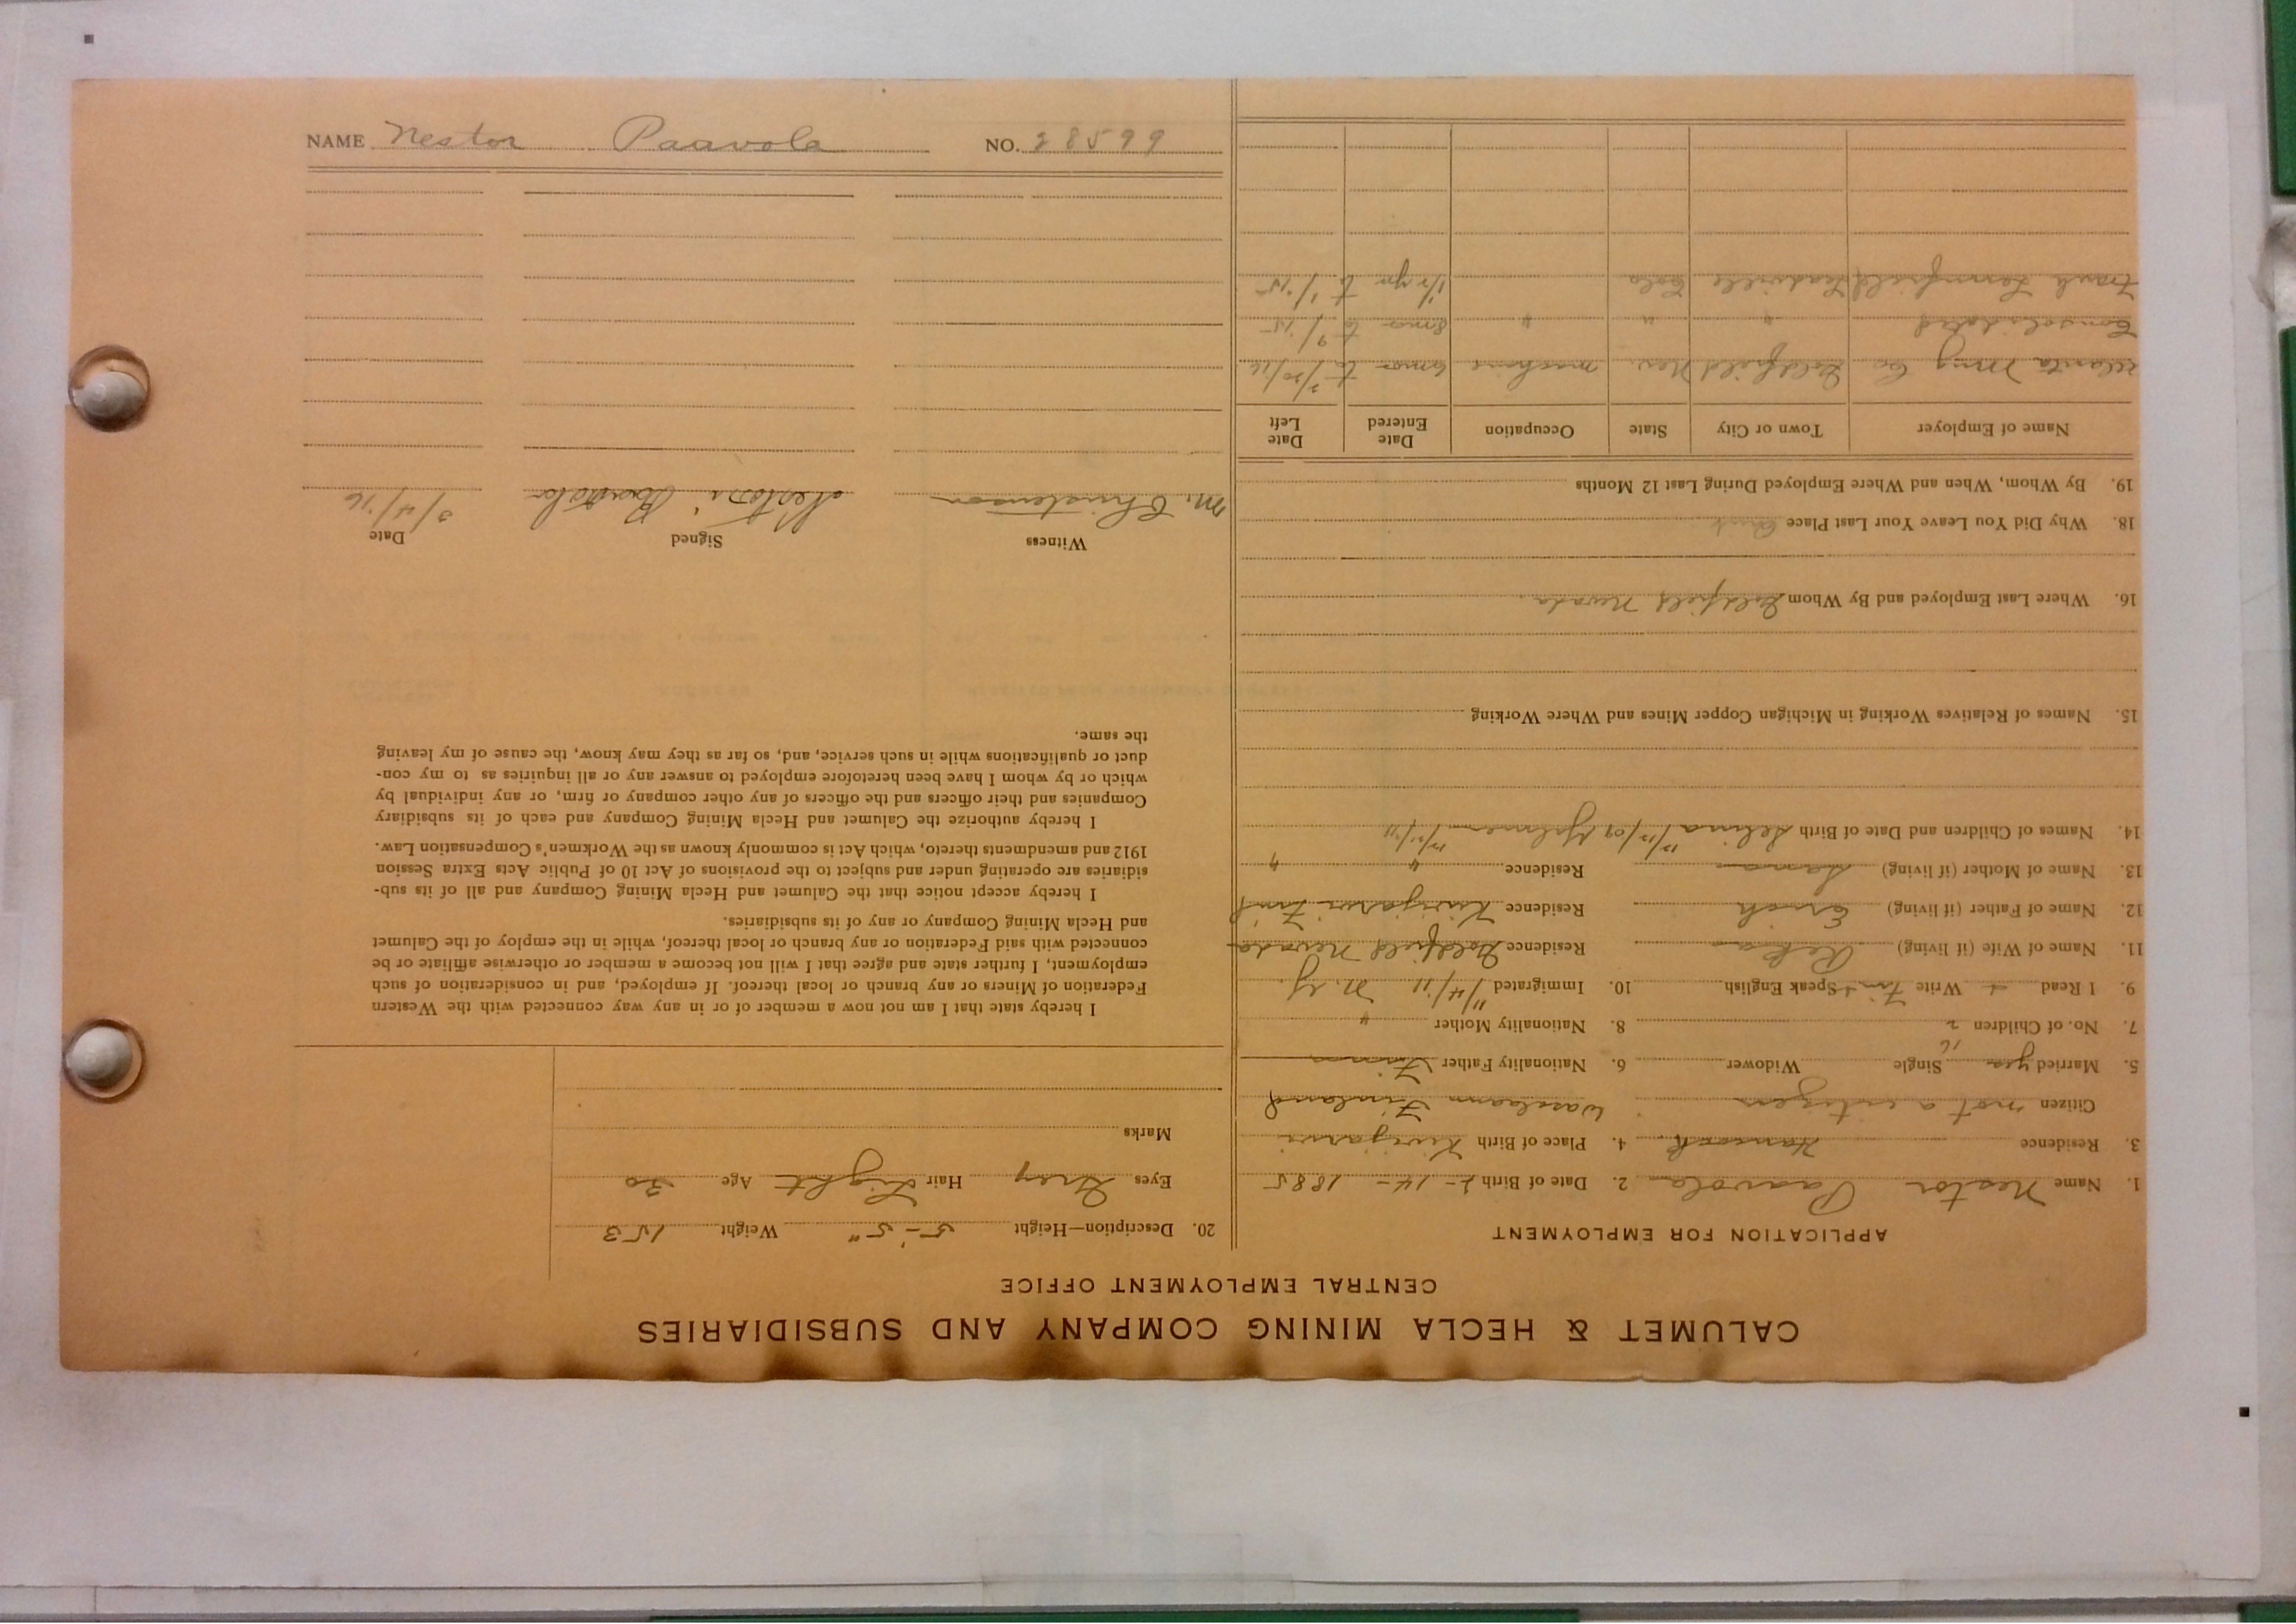 NAME Nestor Paavola NO. 28599
CALUMET & HECLA MINING COMPANY AND SUBSIDIARIES
CENTRAL EMPLOYMENT OFFICE
APPLICATION FOR EMPLOYMENT
1. Name Nestor Paavola 2. Date of Birth 14 - 1885
3. Residence Hancock 4. Place of Birth Kivijarvi
Citizen not a citizen Finland
5. Married yes Single Widower 6. Nationality Father Finn
7. No. of Children 2 8. Nationality Mother "
9. I Read Write Speak English 10. Immigrated 11/4/11 N.Y.
11. Name of Wife (if living) Residence Goldfield Nevada
12. Name of Father (if living) Erick Residence Kivijarvi Finl
13. Name of Mother (if living) Residence " "
14. Names of Children and Date of Birth Selma
15. Names of Relatives Working in Michigan Copper Mines and Where Working
16. Where Last Employed and By Whom Goldfield Nevada.
18. Why Did You Leave Your Last Place Quit
19. By Whom, When and Where Employed During Last 12 Months
Name of Employer Town or City State Occupation Date Entered Date Left
Mng Co Goldfield Nev. machine 6 mos to
Consolidated " " " 8 mos to 9/15
Leadville Colo 1/2 yr to 1/15
20. Description—Height 5'-5" Weight 153
Eyes Grey Hair Light Age 30
Marks
I hereby state that I am not now a member of or in any way connected with the Western
Federation of Miners or any branch or local thereof. If employed, and in consideration of such
employment, I further state and agree that I will not become a member or otherwise affiliate or be
connected with said Federation or any branch or local thereof, while in the employ of the Calumet
and Hecla Mining Company or any of its subsidiaries.
I hereby accept notice that the Calumet and Hecla Mining Company and all of its sub-
sidiaries are operating under and subject to the provisions of Act 10 of Public Acts Extra Session
1912 and amendments thereto, which Act is commonly known as the Workmen's Compensation Law.
I hereby authorize the Calumet and Hecla Mining Company and each of its subsidiary
Companies and their officers and the officers of any other company or firm, or any individual by
which or by whom I have been heretofore employed to answer any or all inquiries as to my con-
duct or qualifications while in such service, and, so far as they may know, the cause of my leaving
the same.
Witness Signed Date
M. Christenson Nestori Paavola 3/4/16